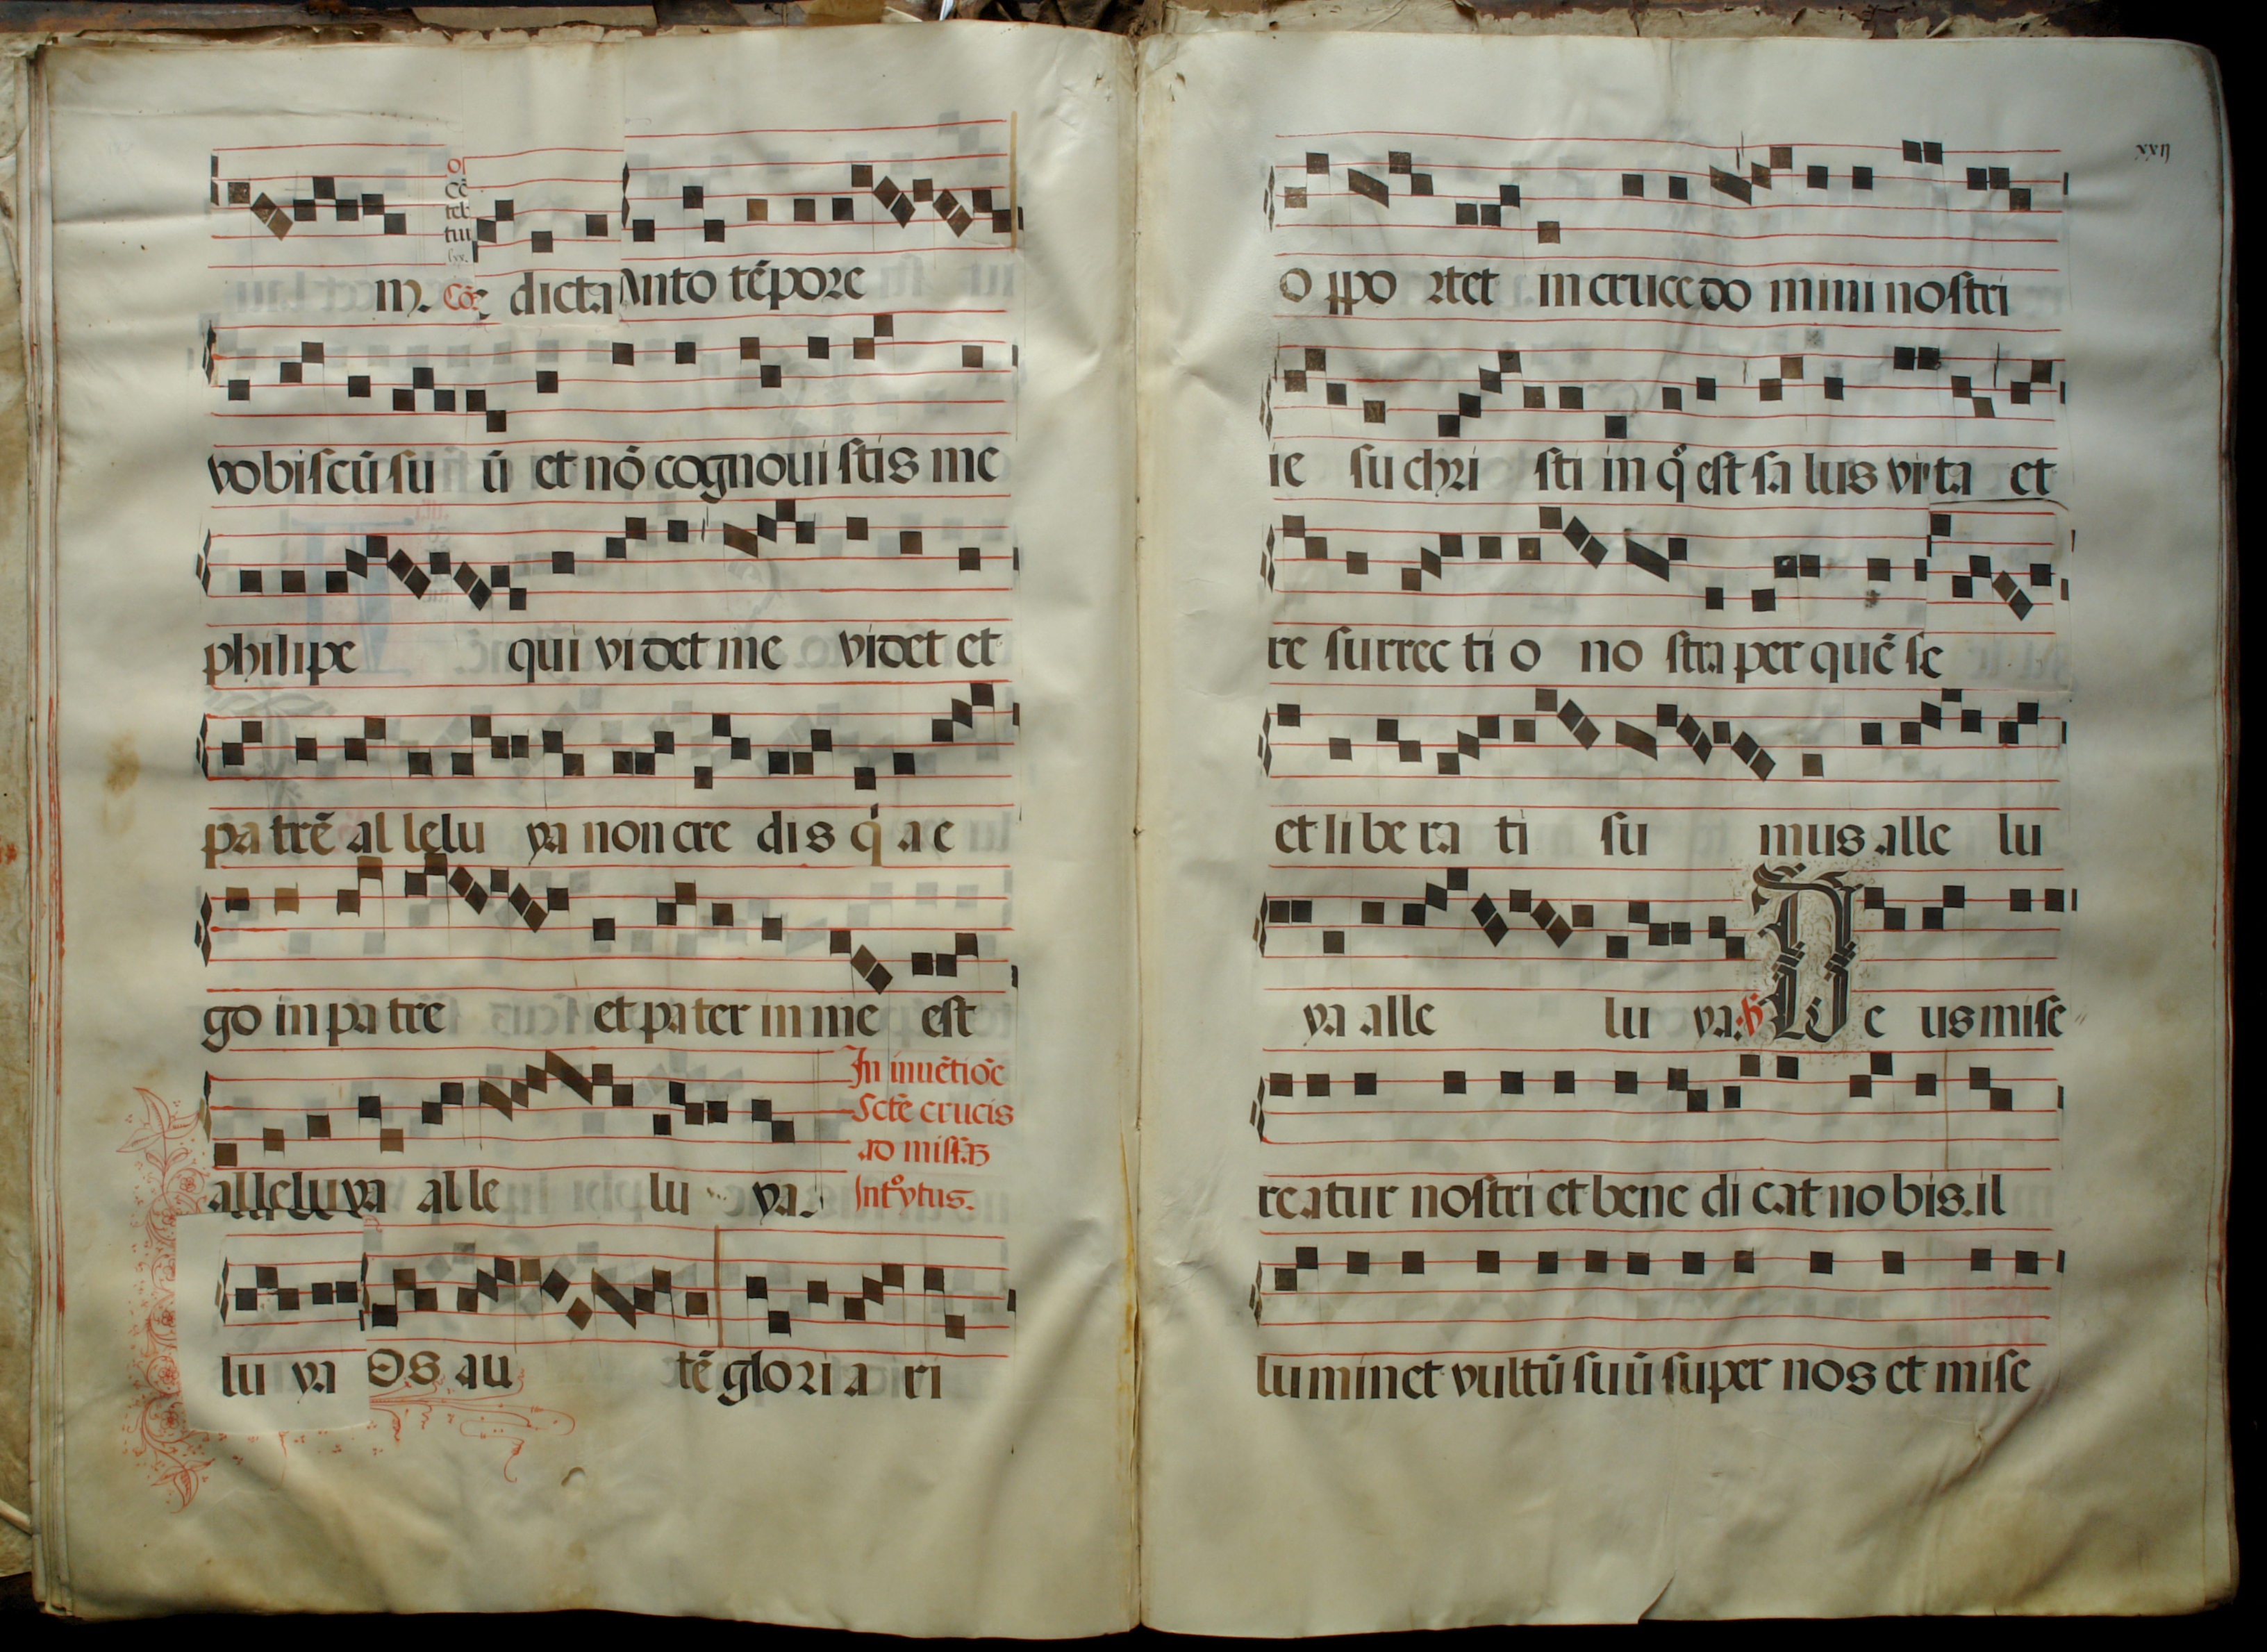 m. Cō: dicta Anto tēpore
vobiſcū ſu ū et nō cognoui ſtis me
philipe qui videt me videt et
pa trē al lelu ya non cre dis q a e
go in pa tre et pa ter in me eſt
In inuētiōe
Scte crucis
ad miſſā
alleluya alle lu ya.
Introytus.
lu ya Os au tē glo ri a ri
xxij
o ppo rtet in cruce do mini noſtri
ie ſu chri ſti in q eſt ſa lus vita et
re ſurrec ti o no ſtra per quē ſe
et li be ra ti ſu mus alle lu
ya alle lu ya. D e us miſe
reatur noſtri et bene di cat no bis. il
luminet vultū ſuū ſuper nos et miſe